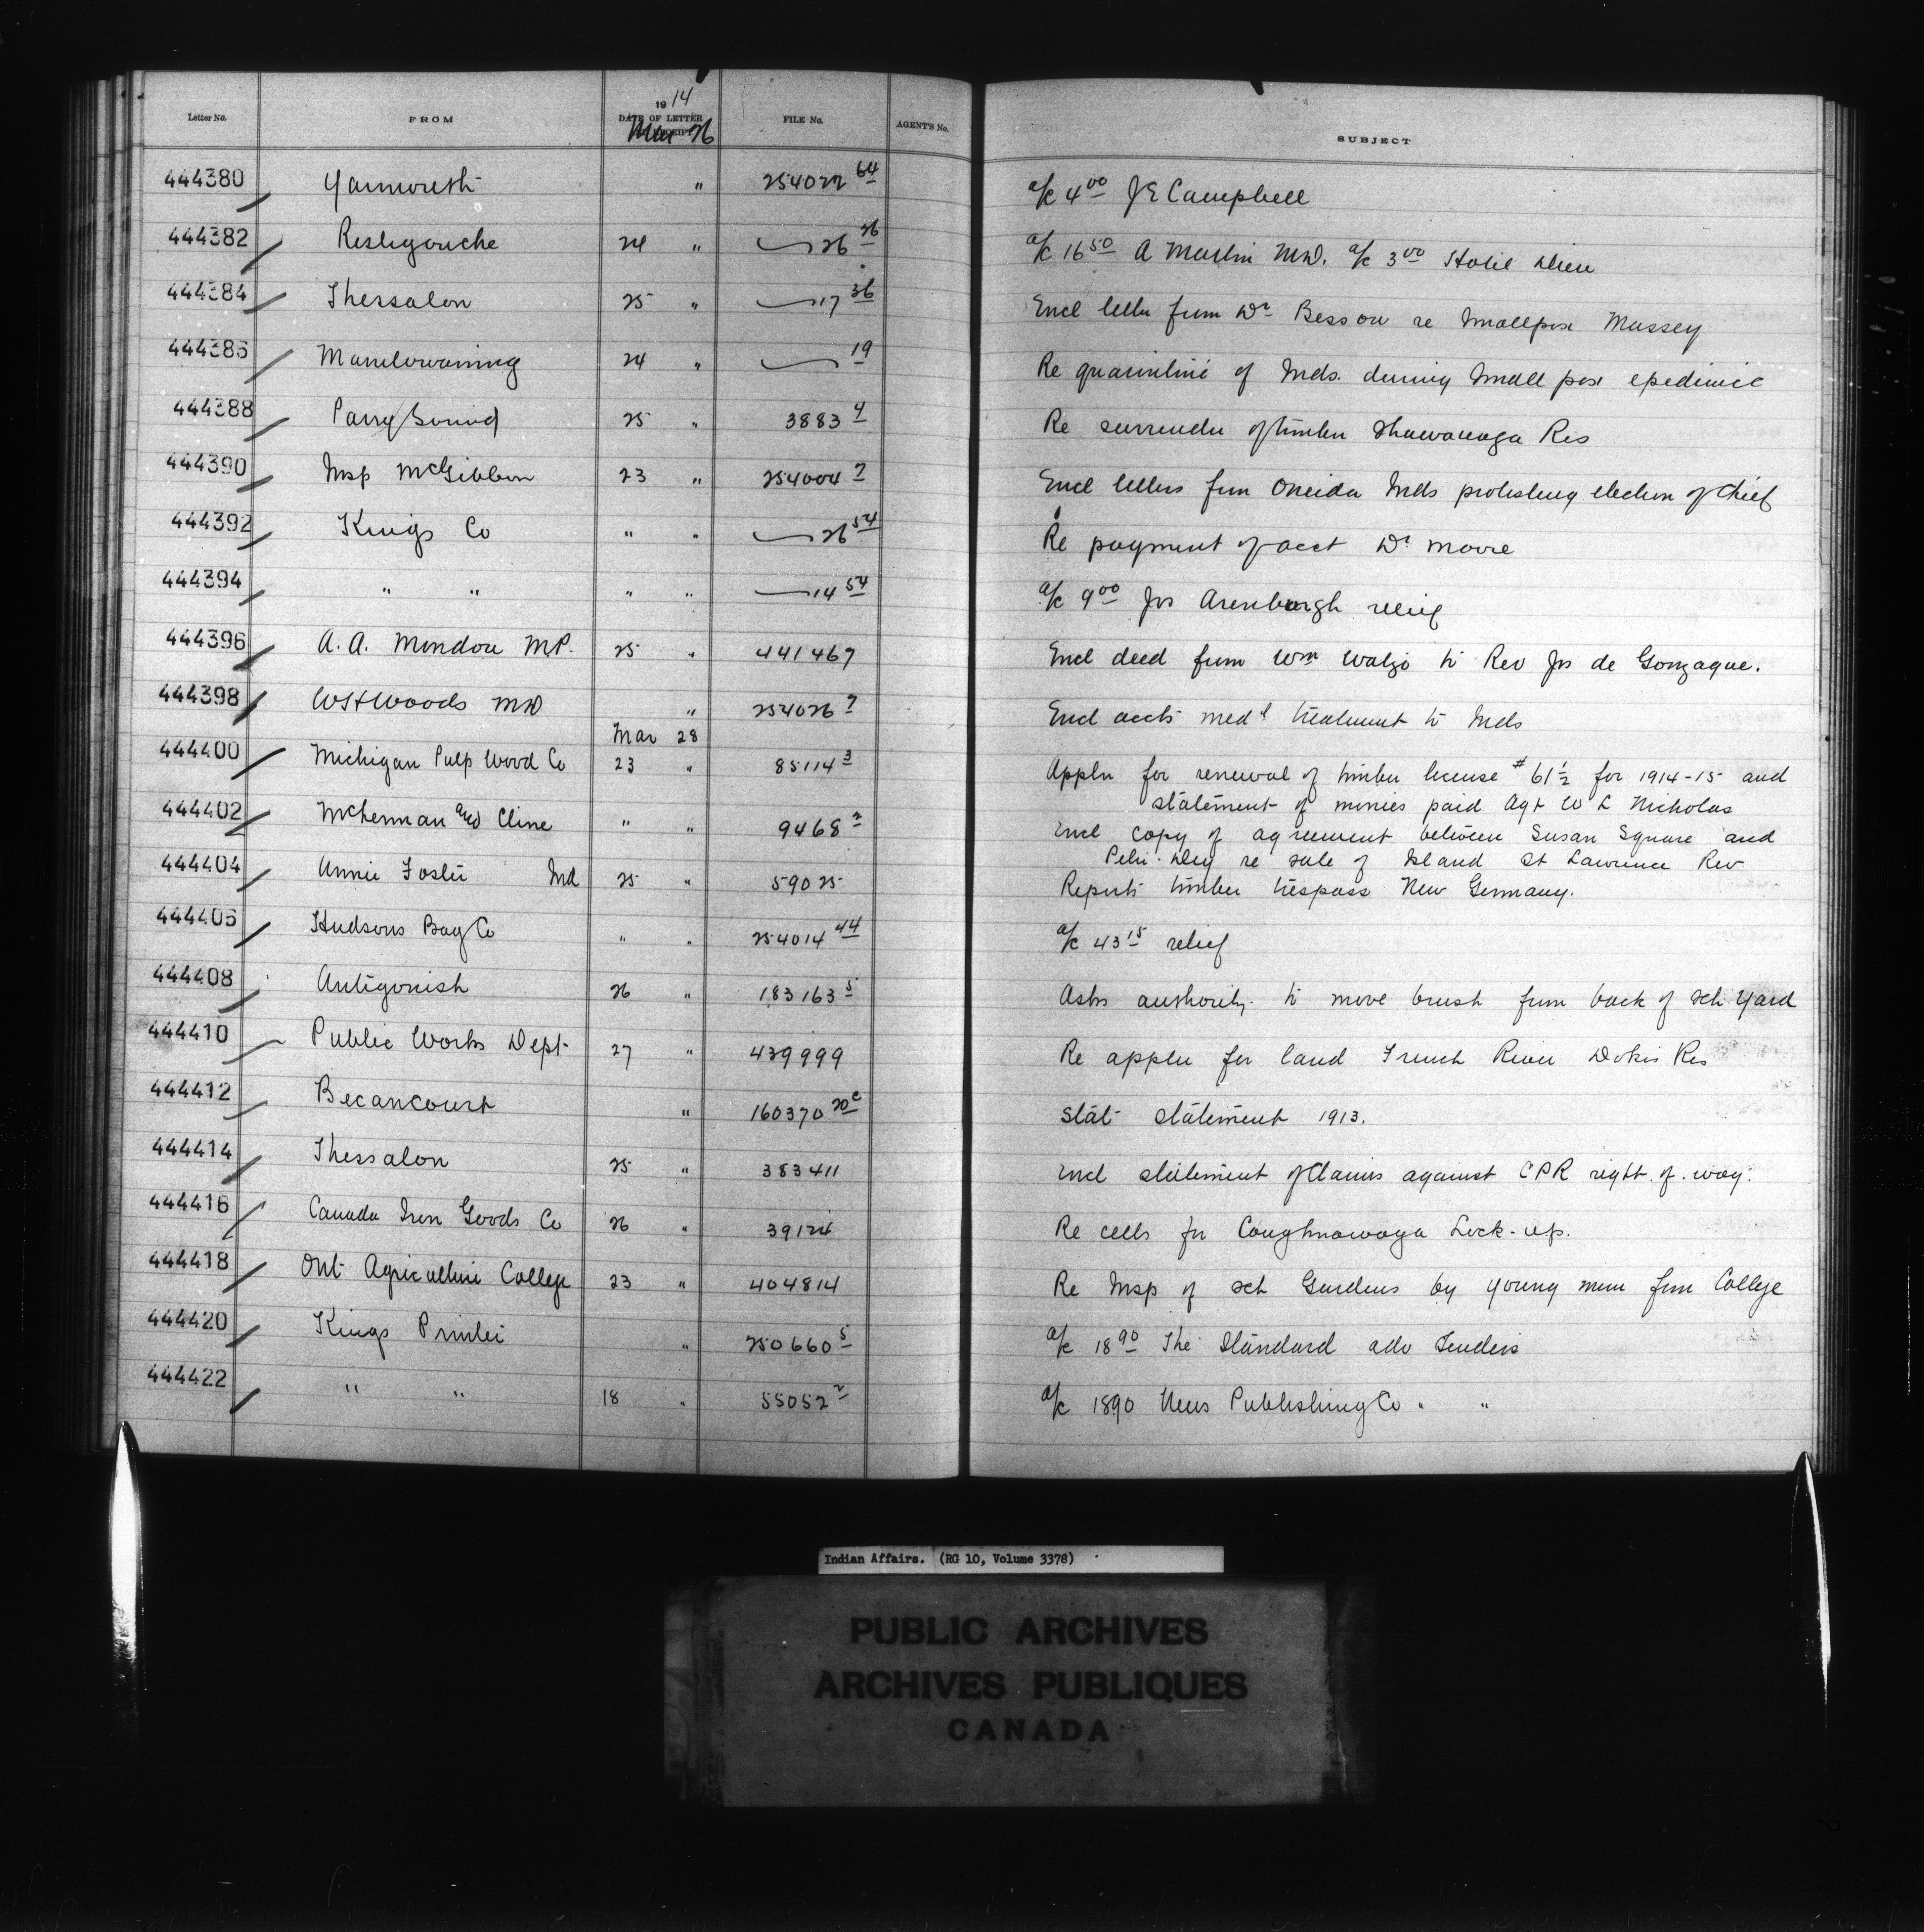 Letter No. FROM 1914 DATE OF LETTER RECEIPT FILE No. AGENT'S No. SUBJECT
Mar 26
444380 Yarmouth " 254022 64 a/c 4 00 J E Campbell
444382 Restigouche 24 " 26 26 a/c 16 50 A Martin M.D. a/c 3 00 Hotel Dieu
444384 Thessalon 25 " 17 36 Encl letter from Dr Besson re Smallpox Massey
444386 Manitowaning 24 " 19 Re quarintine of Inds. during Small pox epedimic
444388 Parry Sound 25 " 3883 4 Re surrender of timber Shawanaga Res
444390 Insp McGibbon 23 " 254004 7 Encl letters from Oneida Inds protesting election of Chief
444392 Kings Co " " 26 54 Re payment of acct Dr Moore
444394 " " " " 14 54 a/c 9 00 Jos Arenburgh relief
444396 A. A. Mondou M.P. 25 " 441467 Encl deed from Wm Watzo to Rev Jos de Gonzague.
444398 W H Woods MD " 254026 7 Encl accts medl treatment to Inds
Mar 28
444400 Michigan Pulp Wood Co 23 " 85114 3 Appln for renewal of timber license # 61½ for 1914-15 and
statement of monies paid Agt W L Nicholas
444402 McLennan and Cline " " 9468 2 Encl copy of agreement between Susan Square and
Peter Day re sale of Island St Lawrence Riv
444404 Annie Foster Ind 25 " 59025 Reports timber trespass New Germany.
444406 Hudsons Bay Co " " 254014 44 a/c 43 15 relief
444408 Antigonish 26 " 183163 5 Asks authority to move brush from back of sch yard
444410 Public Works Dept 27 " 439999 Re appln for land French River Dokis Res
444412 Becancourt " 160370 20c Stat statement 1913.
444414 Thessalon 25 " 383411 Encl statement of Claims against CPR right. of. way.
444416 Canada Iron Goods Co 26 " 39124 Re cells for Caughnawaga Lock-up.
444418 Ont Agriculture College 23 " 404814 Re Insp of sch Gardens by young men from College
444420 Kings Printer " 250660 5 a/c 18 90 The Standard adv Tenders
444422 " " 18 " 55052 2 a/c 1890 News Publishing Co " "
Indian Affairs. (RG 10, Volume 3378)
PUBLIC ARCHIVES
ARCHIVES PUBLIQUES
CANADA